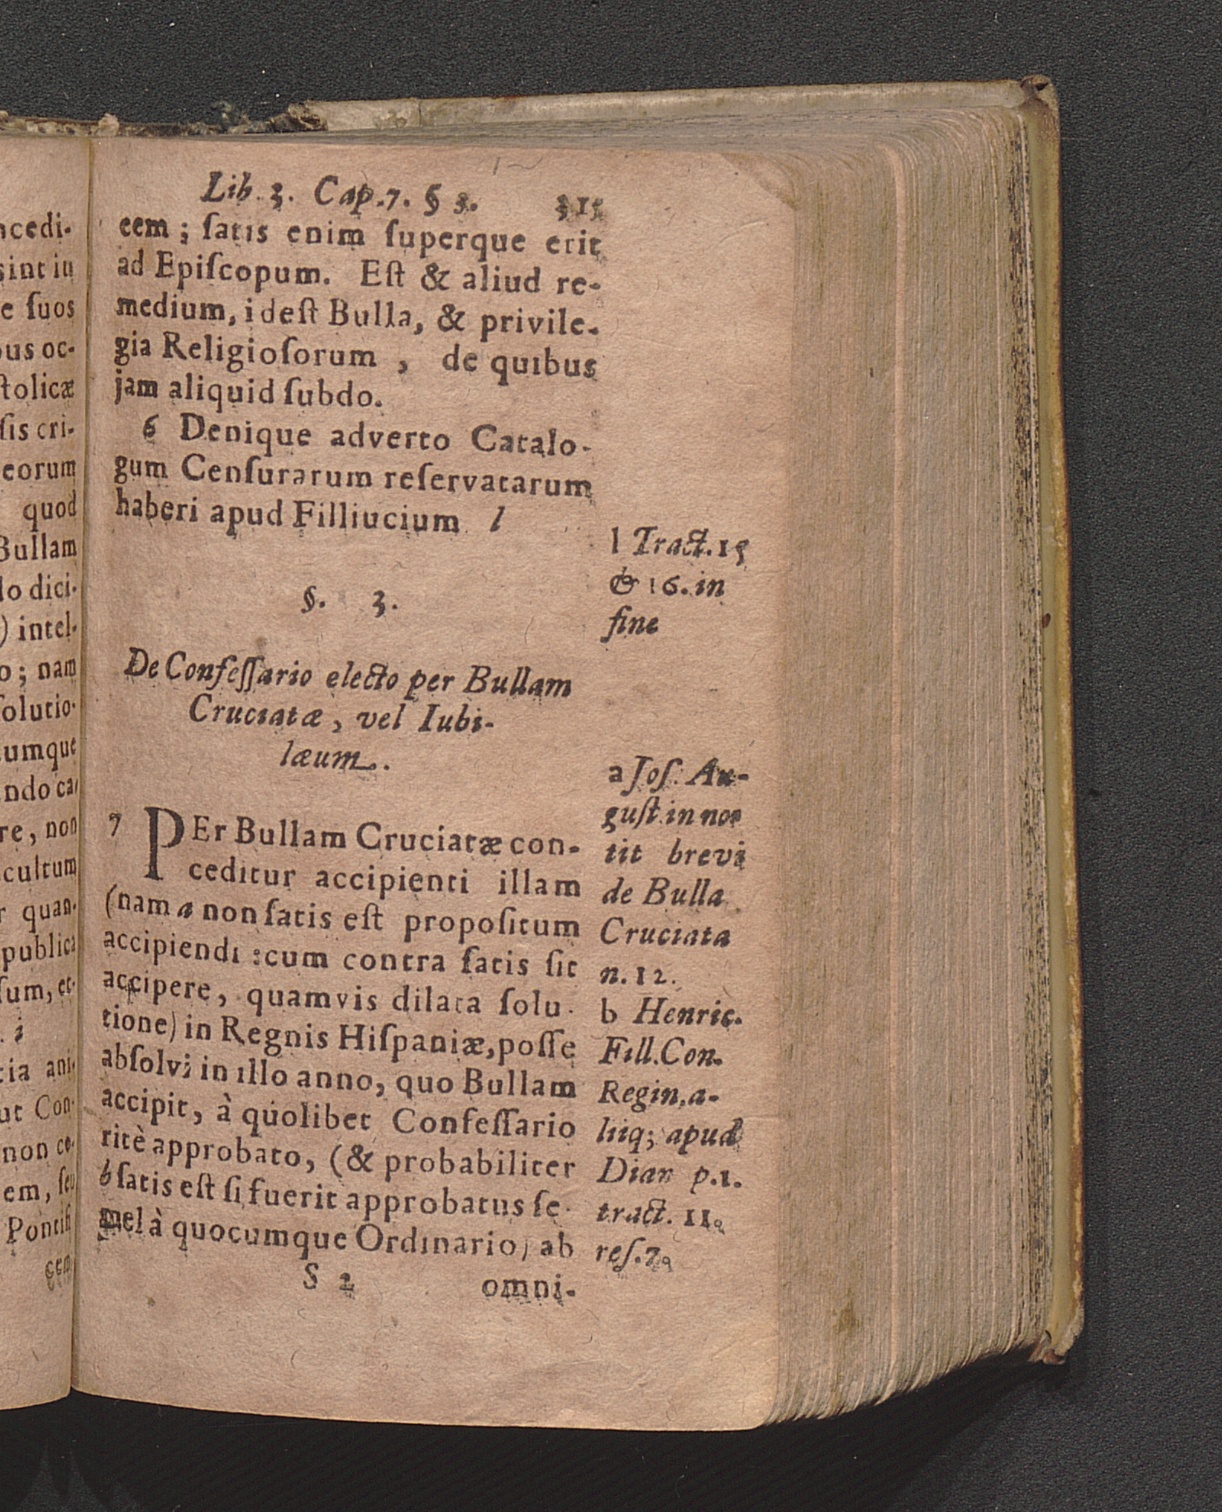 Lib. 3. Cap. 7. § 3. 315
cem ; ſatis enim ſuperque erit
ad Epiſcopum. Eſt & aliud re-
medium, ideſt Bulla, & privile-
gia Religioſorum , de quibus
jam aliquid ſubdo.
6 Denique adverto Catalo-
gum Cenſurarum reſervatarum
haberi apud Filliucium l
§. 3.
De Confeſſario electo per Bullam
Cruciatæ, vel Iubi-
læum.
7 PEr Bullam Cruciatæ con-
ceditur accipienti illam
(nam a non ſatis eſt propoſitum
accipiendi : cum contra ſatis ſit
accipere, quamvis dilata ſolu-
tione) in Regnis Hiſpaniæ, poſſe
abſolvi in illo anno, quo Bullam
accipit, à quolibet Confeſſario
ritè approbato, (& probabiliter
b ſatis eſt ſi fuerit approbatus ſe-
mel à quocumque Ordinario) ab
S 2 omni-
l Tract. 15
& 16. in
fine
a Joſ. Au-
guſt. in no-
tit brevi
de Bulla
Cruciata
n. 12.
b Henric.
Fill. Con.
Regin, a-
liiq; apud
Dian p. 1.
tract. 11.
reſ. 7.
ncedi-
sint in
e ſuos
bus oc-
ſtolicæ
ſis cri-
eorum
quod
Bullam
do dici-
) intel-
o ; nam
ſolutio-
cumque
ndo ca-
re, non
cultum
r quan-
publica
ſum, et-
. i
tia ani-
ut Con-
non ce-
em, ſeu
Pontifi
cem